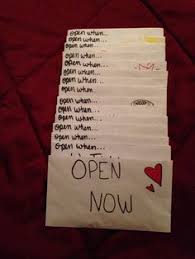 open when...
open when...
open when...
open when...
open when...
open when...
open when...
open when...
open when...
open when...
open when...
open when...
open when...
OPEN
NOW